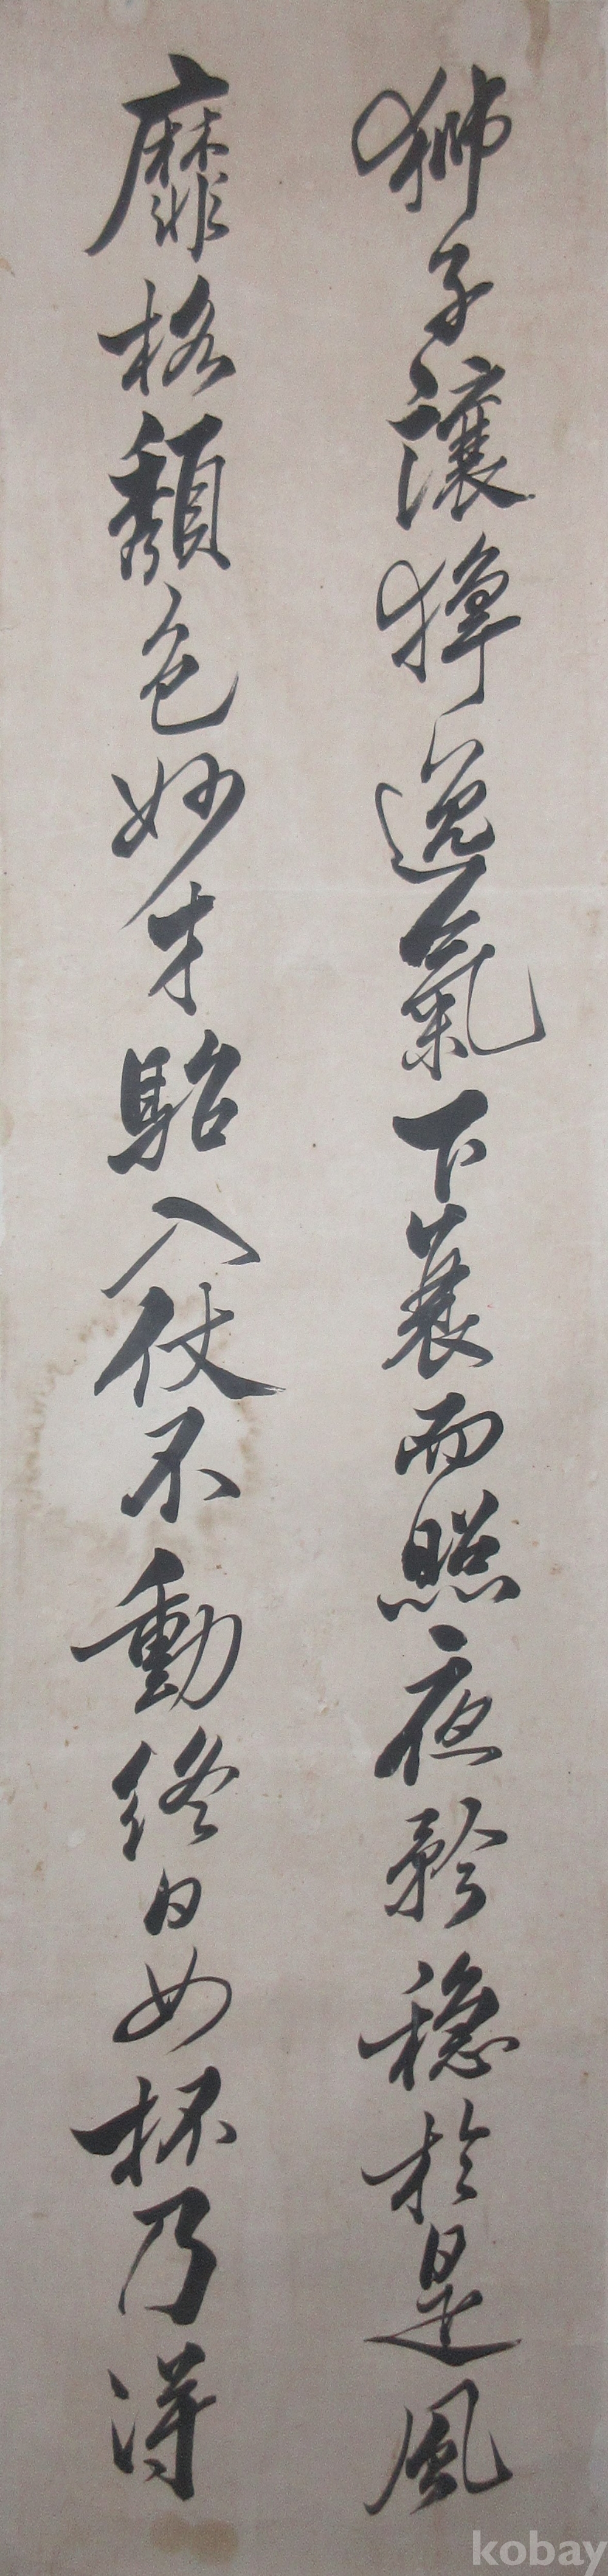 獅子讓獰逸氣下蓑而照夜矜穩於是風
靡格頽色妙才駘入仗不動終日如杯乃得
kobay